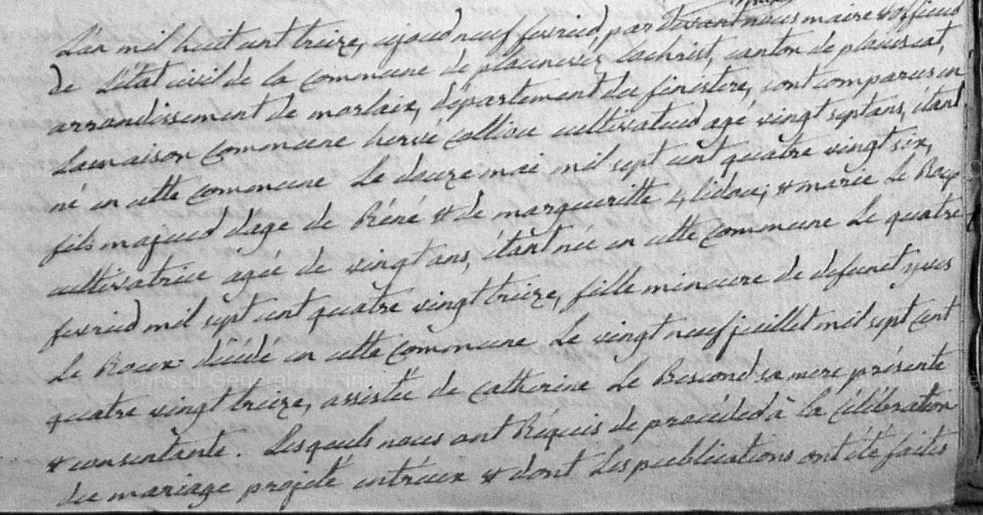 L'an mil huit cent treize, ajoud neuf fevried, par devant nous maire & officied
de L'état civil de la commune de plounevez lochrist, canton de plouescat,
arrondissement de morlaix, département du finistere, sont comparus en
la maison commune hervé collioc cultivateud agé vingt sept ans, étant
né en cette commune le douze mai mil sept cent quatre vingt six,
fils majeud d'age de Réné & de margueritte & marie Le Roux
cultivatrice agée de vingt ans, étant née en cette commune Le quatre
fevried mil sept cent quatre vingt treize, fille mineure de defunct yves
Le Roux décédé en cette commune Le vingt neuf juillet mil sept cent
quatre vingt treize, assistée de catherine Le Bescond sa mere présente
& consentante. Lesquels nous ont Réquis de procéded à la Célébration
du mariage projeté entr'eux & dont Les publications ont été faites
Conseil Général du Finistère